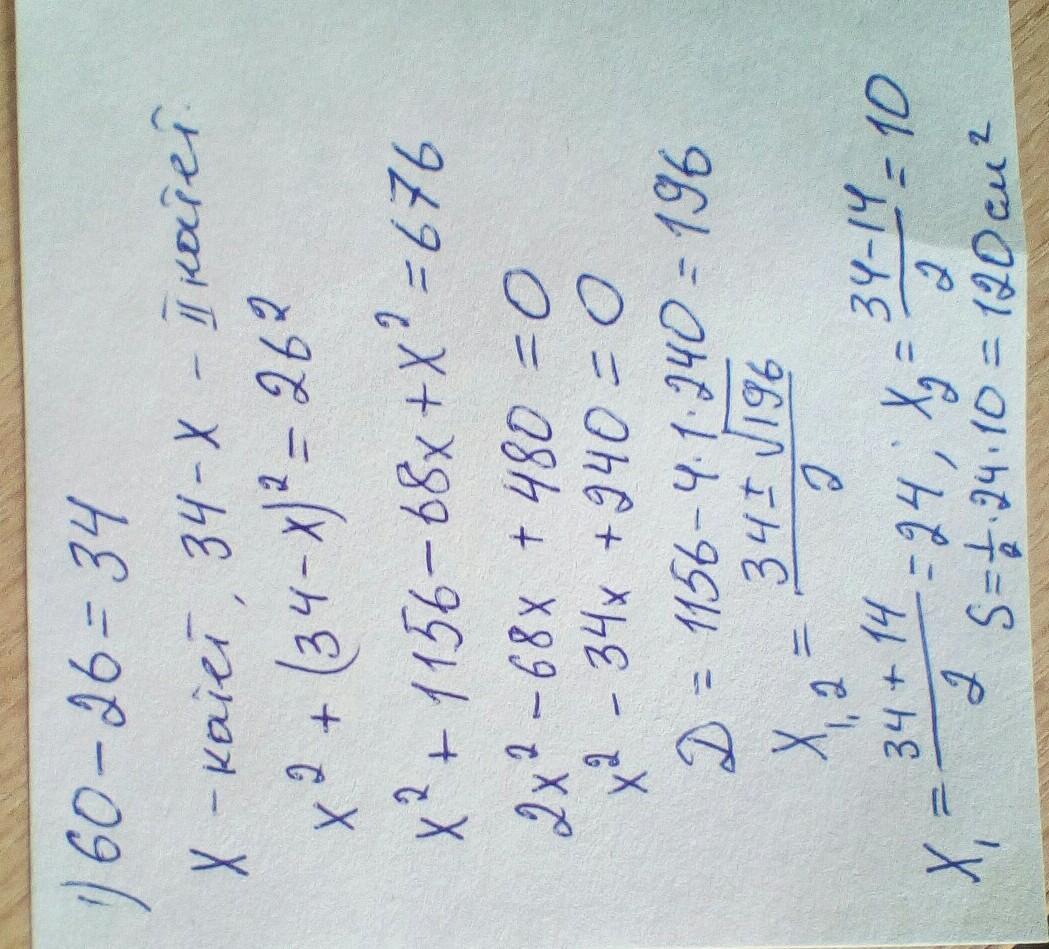 1) 60 - 26 = 34
x - катет, 34 - x - II катет.
x² + (34 - x)² = 26²
x² + 1156 - 68x + x² = 676
2x² - 68x + 480 = 0
x² - 34x + 240 = 0
D = 1156 - 4·1·240 = 196
x₁,₂ = (34 ± √196)/2
x₁ = (34 + 14)/2 = 24, x₂ = (34 - 14)/2 = 10
S = 1/2·24·10 = 120 см²